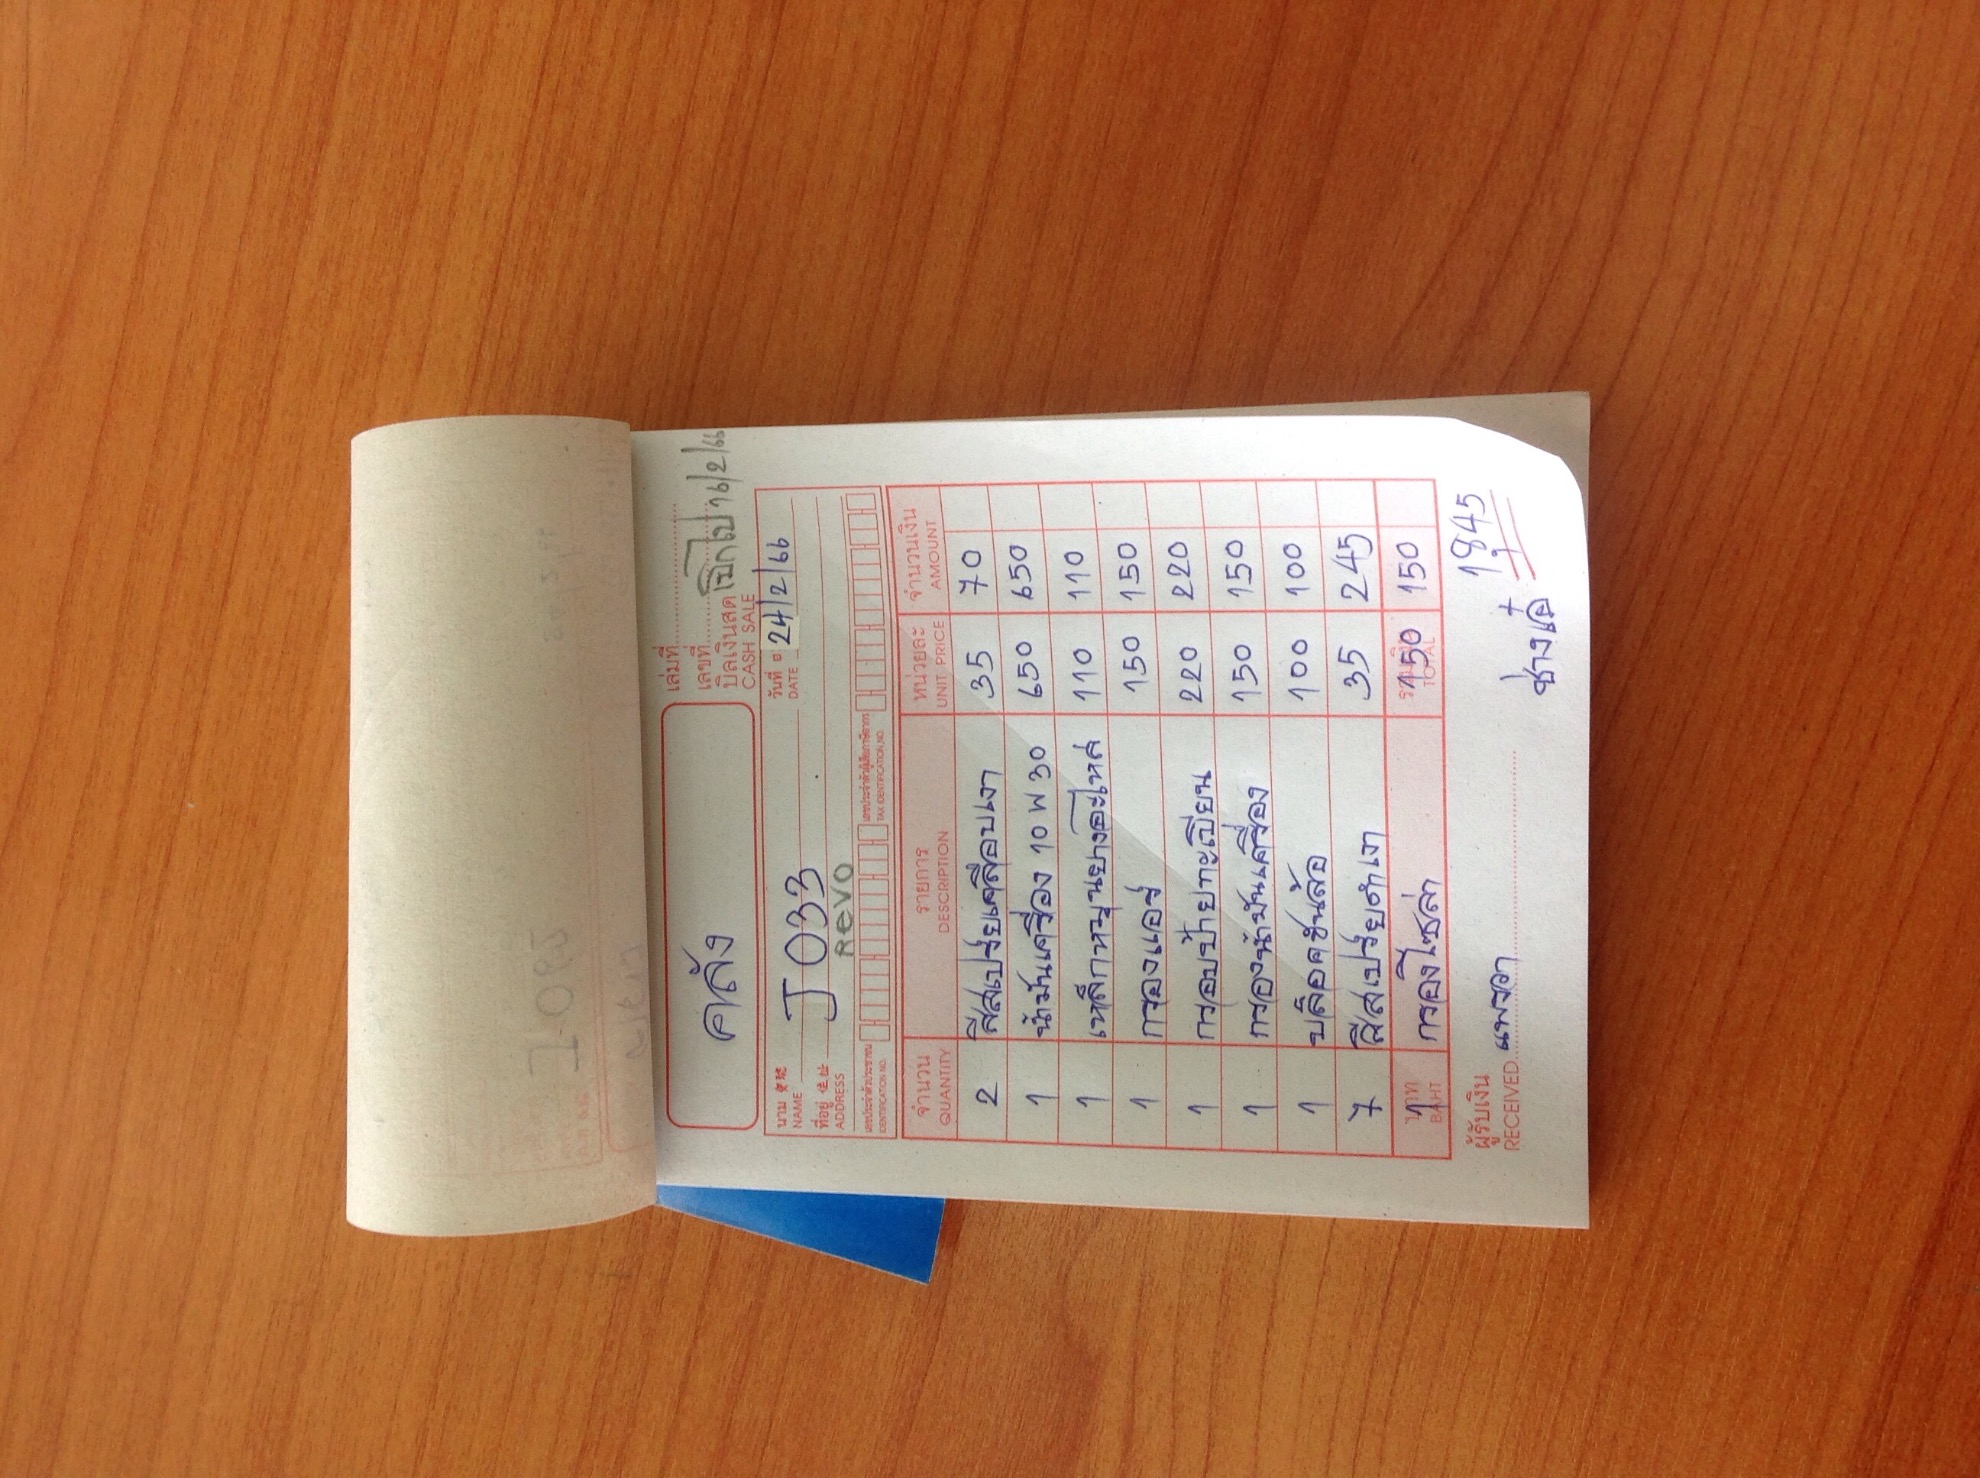 คลัง
เล่มที่
เลขที่
บิลเงินสด เบิกไป 16/2/66
CASH SALE
วันที่ 24/2/66
DATE
นาม J 033
NAME
ที่อยู่ REVO
ADDRESS
เลขประจำตัวประชาชน เลขประจำตัวผู้เสียภาษีอากร
IDENTIFICATION NO. TAX IDENTIFICATION NO.
จำนวน รายการ หน่วยละ จำนวนเงิน
QUANTITY DESCRIPTION UNIT PRICE AMOUNT
2 สีสเปรย์เคลือบเงา 35 70
1 น้ำมันเครื่อง 10 W 30 650 650
1 เหล็กหมุนยางอะไหล่ 110 110
1 กรองแอร์ 150 150
1 กรอบป้ายทะเบียน 220 220
1 กรองน้ำมันเครื่อง 150 150
1 บล็อคขันล้อ 100 100
7 สีสเปรย์ดำเงา 35 245
1 กรองโซล่า 150 150
บาท
BAHT TOTAL
1,845
ผู้รับเงิน
RECEIVED แพรวา
ช่างเอ๋